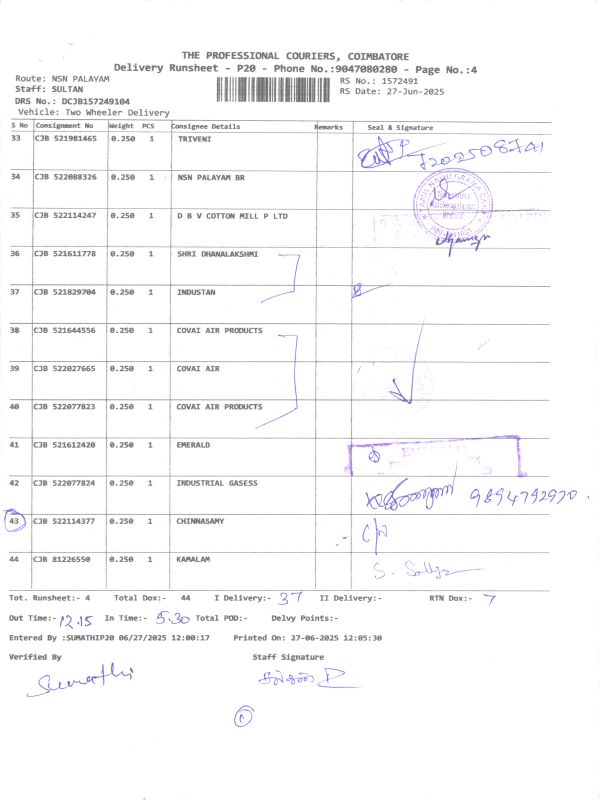 THE PROFESSIONAL COURIERS, COIMBATORE
Delivery Runsheet - P20 - Phone No.:9047080280 - Page No.:4
Route: NSN PALAYAM RS No.: 1572491
Staff: SULTAN RS Date: 27-Jun-2025
DRS No.: DCJB157249104
Vehicle: Two Wheeler Delivery
S No Consignment No Weight PCS Consignee Details Remarks Seal & Signature
33 CJB 521981465 0.250 1 TRIVENI
34 CJB 522088326 0.250 1 NSN PALAYAM BR
35 CJB 522114247 0.250 1 D B V COTTON MILL P LTD
36 CJB 521611778 0.250 1 SHRI DHANALAKSHMI
37 CJB 521829704 0.250 1 INDUSTAN
38 CJB 521644556 0.250 1 COVAI AIR PRODUCTS
39 CJB 522027665 0.250 1 COVAI AIR
40 CJB 522077823 0.250 1 COVAI AIR PRODUCTS
41 CJB 521612420 0.250 1 EMERALD
42 CJB 522077824 0.250 1 INDUSTRIAL GASESS 9894792970.
43 CJB 522114377 0.250 1 CHINNASAMY
44 CJB 81226550 0.250 1 KAMALAM
Tot. Runsheet:- 4 Total Dox:- 44 I Delivery:- 37 II Delivery:- RTN Dox:- 7
Out Time:- 12.15 In Time:- 5.30 Total POD:- Delvy Points:-
Entered By :SUMATHIP20 06/27/2025 12:00:17 Printed On: 27-06-2025 12:05:30
Verified By Staff Signature
Sumathi